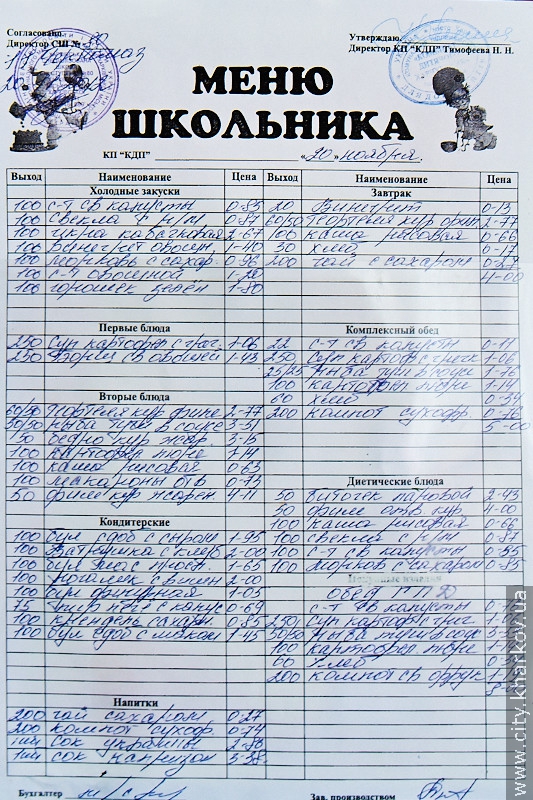 Согласовано
Директор СШ № 90
Утверждаю.
Директор КП "КДП" Тимофеева Н. Н.
МЕНЮ
ШКОЛЬНИКА
КП "КДП" «20» ноября.
Выход Наименование Цена
Холодные закуски
100 с-т св капусты 0-85
100 свекла 0-87
100 икра кабачковая 2-67
100 винегрет овощн 1-40
100 морковь с сахар. 0-96
100 с-т овощной 1-20
100 горошек зелен 1-80
Первые блюда
250 суп картоф с греч 1-06
250 борщ св овощей 1-43
Вторые блюда
50/50 тефтеля кур фине 2-77
50/50 рыба туш в соусе 3-51
130 бедро кур жар. 3-15
100 картофел пюре 1-14
100 каша рисовая 0-63
100 макароны отв 0-73
50 филе кур жарен 4-11
Кондитерские
100 бул сдоб с сыром 1-95
100 Ватрушка с 2-00
100 бул 1-65
100 Рогалик с вишн 2-00
100 бул фигурная 1-05
75 0-69
100 крендель сахарн. 0-85
100 бул сдоб с маком 1-45
Напитки
200 чай сахаром 0-27
200 компот сухоф. 0-74
сок украины 2-86
сок капризон 3-38
Бухгалтер
Выход Наименование Цена
Завтрак
20 Винегрет 0-13
50/50 тефтеля кур 2-77
100 каша рисовая 0-66
30 хлеб 0-17
200 чай с сахаром 0-27
4-00
Комплексный обед
22 с-т св капусты 0-11
250 суп картоф с греч 1-06
25/25 рыба туш в соус 1-76
100 картофел пюре 1-14
60 хлеб 0-34
200 компот сухофр. 0-76
5-00
Диетические блюда
50 биточек паровой 2-43
50 филе отв. кур 4-00
100 каша рисовая 0-66
100 свекла 0-87
100 с-т св капусты 0-85
100 морков с сахаром 0-85
обед
с-т св капусты
250 суп картоф с греч
50/50 рыба туш в соус
100 картофел пюре
60 хлеб
200 компот св фрук
Зав. производством
www.city.kharkov.ua